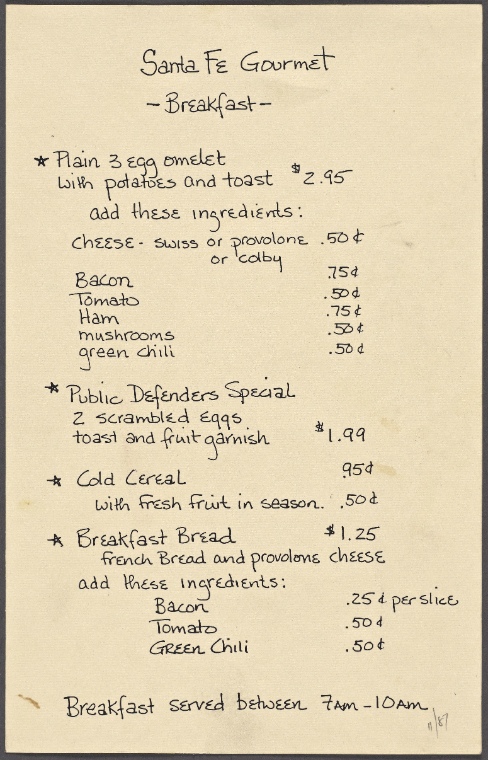 Santa Fe Gourmet
- Breakfast -
★ Plain 3 egg omelet
with potatoes and toast $2.95
add these ingredients:
cheese - swiss or provolone .50¢
or colby
Bacon .75¢
Tomato .50¢
Ham .75¢
mushrooms .50¢
green chili .50¢
★ Public Defenders Special
2 scrambled eggs
toast and fruit garnish $1.99
★ Cold Cereal .95¢
with fresh fruit in season. .50¢
★ Breakfast Bread $1.25
french Bread and provolone cheese
add these ingredients:
Bacon .25¢ per slice
Tomato .50¢
Green Chili .50¢
Breakfast served between 7am - 10am
11/87